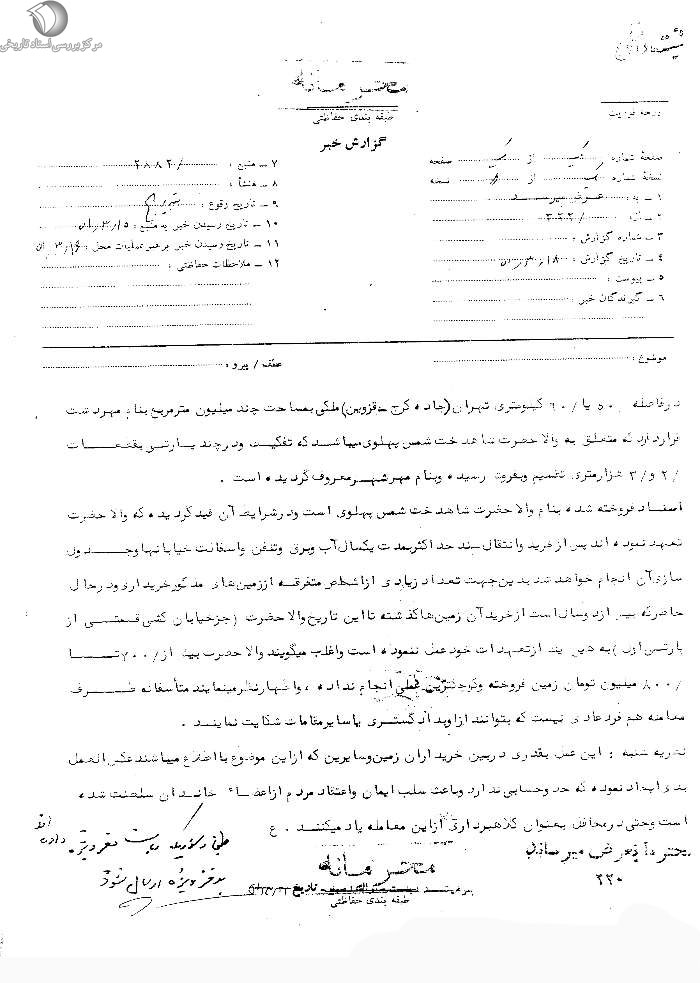 مرکز بررسی اسناد تاریخی
محرمانه
طبقه بندی حفاظتی
گزارش خبر
درجه فوریت
صفحه شماره یک از یک صفحه
نسخه شماره یک از نسخه
۱ ـ به : عرض میرسد
۲ ـ از : ۲۲۲/
۳ ـ شماره گزارش :
۴ ـ تاریخ گزارش : ۵۱/۳/۱۸
۵ ـ پیوست :
۶ ـ گیرندگان خبر :
۷ ـ منبع : ۲۸۸۲/
۸ ـ منشأ :
۹ ـ تاریخ وقوع :
۱۰ ـ تاریخ رسیدن خبر به منبع : ۵۱/۳/۱۵
۱۱ ـ تاریخ رسیدن خبر به رهبر عملیات محل : ۵۱/۳/۱۶
۱۲ ـ ملاحظات حفاظتی :
موضوع :
عطف / پیرو :
در فاصله ۵۰ یا ۶۰/ کیلومتری تهران (جاده کرج ـ قزوین) ملکی بمساحت چند میلیون مترمربع بنام مهردشت
قرار دارد که متعلق به والاحضرت شاهدخت شمس پهلوی میباشد که تفکیک و در چند پارتی و بقطعات
۲/ و ۳/ هزارمتری تقسیم و بفروش رسیده و بنام مهرشهر معروف گردیده است .
اسناد فروخته شده بنام والاحضرت شاهدخت شمس پهلوی است و در شرایط آن قید گردیده که والاحضرت
تعهد نموده اند پس از خرید و انتقال سند حداکثر بمدت یکسال آب و برق و تلفن و اسفالت خیابانها و جدول
سازی آن انجام خواهد شد بدین جهت تعداد زیادی از اشخاص متفرقه از زمین های مذکور خریداری و در حال
حاضر که بیش از دو سال است از خرید آن زمین ها گذشته تا این تاریخ والاحضرت (جز خیابان کشی قسمتی از
پارتی اول) به هیچ یک از تعهدات خود عمل ننموده است و اغلب میگویند والاحضرت بیش از ۷۰۰/ تا
۸۰۰/ میلیون تومان زمین فروخته و کوچکترین عملی انجام نداده ، و اظهار نظر مینمایند متأسفانه طرف
معامله هم فرد عادی نیست که بتوانند از او به دادگستری یا سایر مقامات شکایت نمایند .
نظریه شنبه : این عمل بقدری در بین خریداران زمین و سایرین که از این موضوع با اطلاع میباشند عکس العمل
بدی ایجاد نموده که حد و حسابی ندارد و باعث سلب ایمان و اعتقاد مردم از اعضاء خاندان سلطنت شده
است و حتی در محافل بعنوان کلاهبرداری از این معامله یاد میکنند . ع
محرمانه
طبقه بندی حفاظتی
۲۲۰
به دفتر ویژه ارسال شود